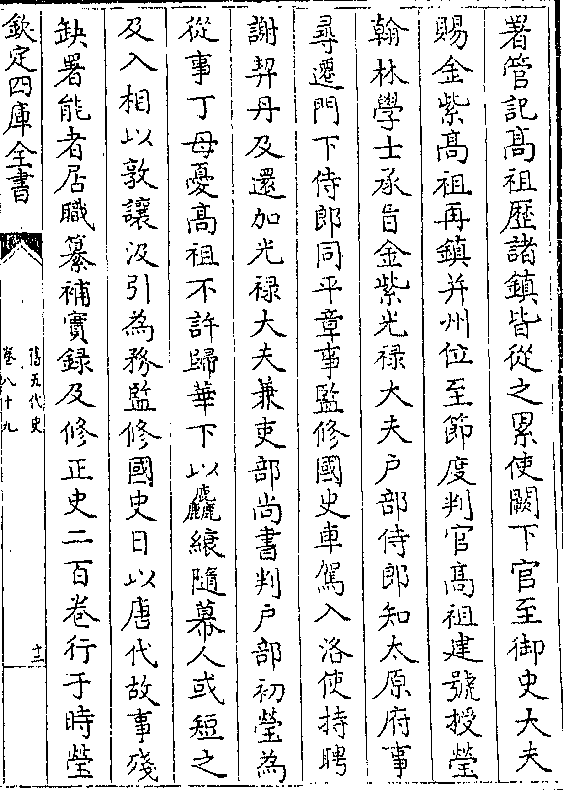 著管記髙祖歴諸鎮皆從之累使闕下官至御史大夫
賜金紫髙祖再鎮并州位至節度判官髙祖建號授瑩
翰林學士承旨金紫光禄大夫户部侍郎知太原府事
尋遷門下侍郎同平章事監修國史車駕入洛使持聘
謝契丹及還加光禄大夫兼吏部尚書判户部初瑩為
從事丁母憂髙祖不許歸華下以麤縗隨幕人或短之
及入相以敦讓汲引為務監修國史日以唐代故事殘
缺署能者居職纂補實録及修正史二百卷行于時瑩
欽定四庫全書
舊五代史
卷八十九
十三